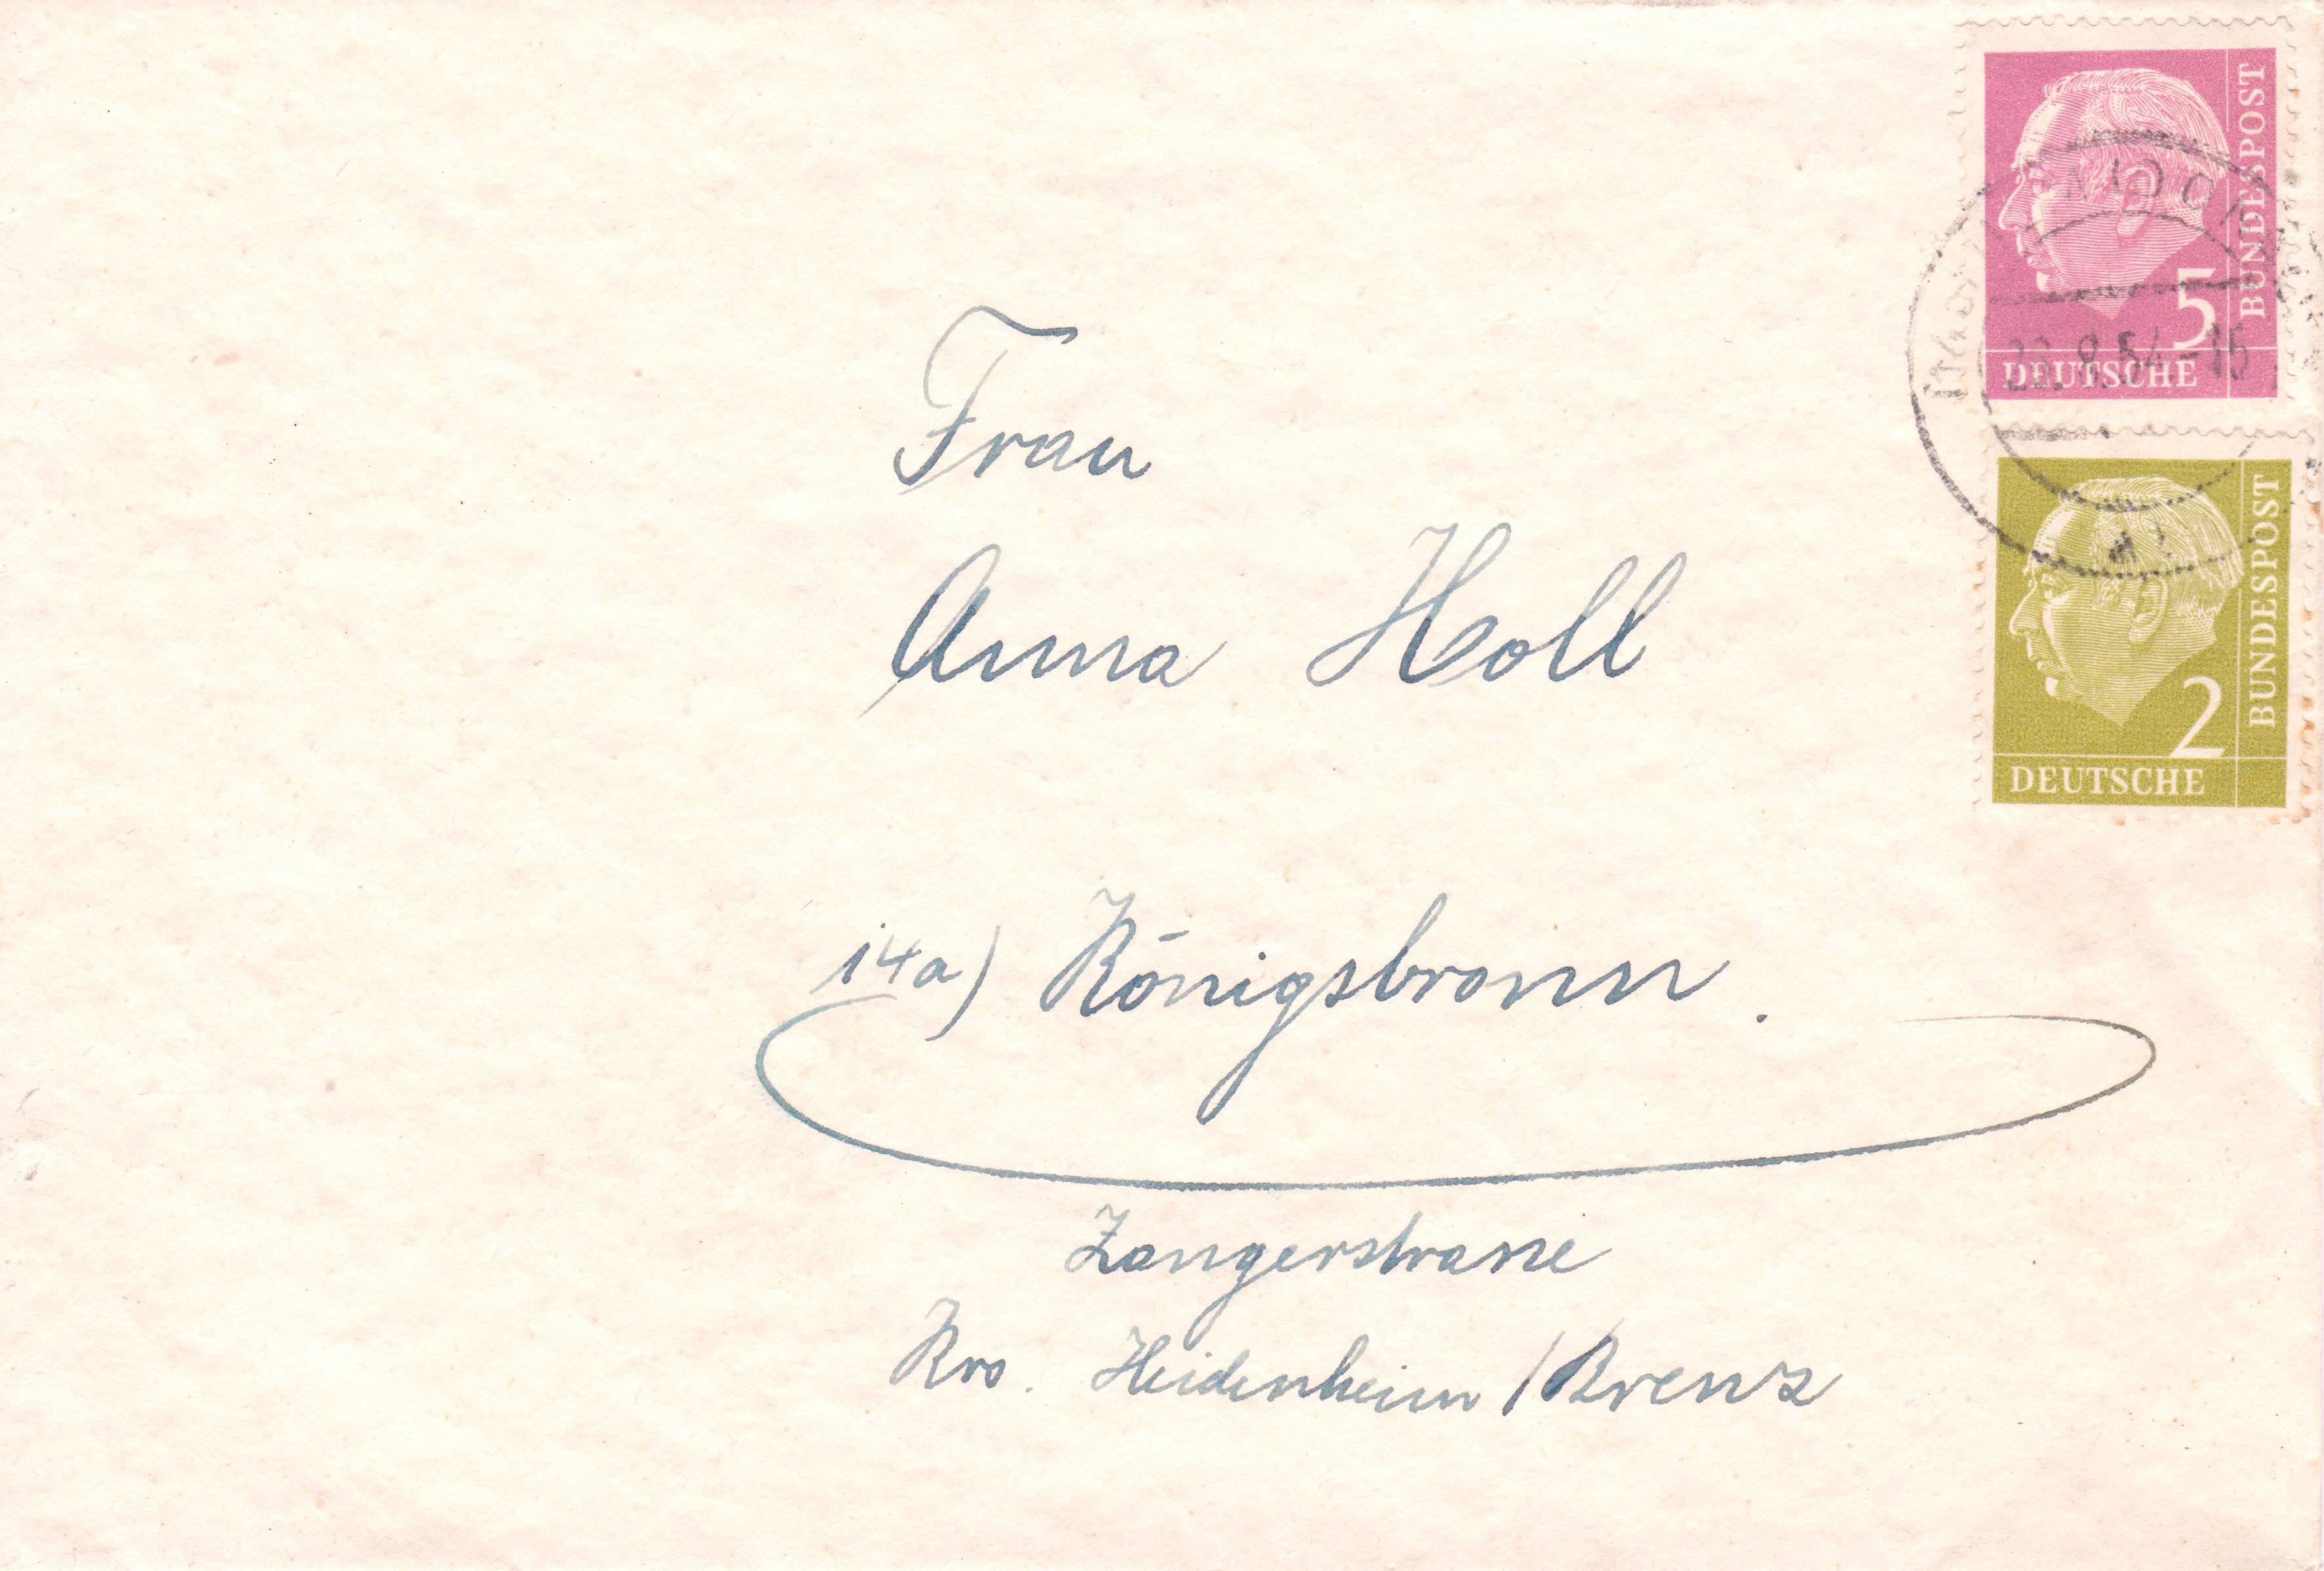 BUNDESPOST
5
DEUTSCHE
54.-15
BUNDESPOST
2
DEUTSCHE
Frau
Anna Holl
14a) Königsbronn.
Zangerstrasse
Krs. Heidenheim / Brenz